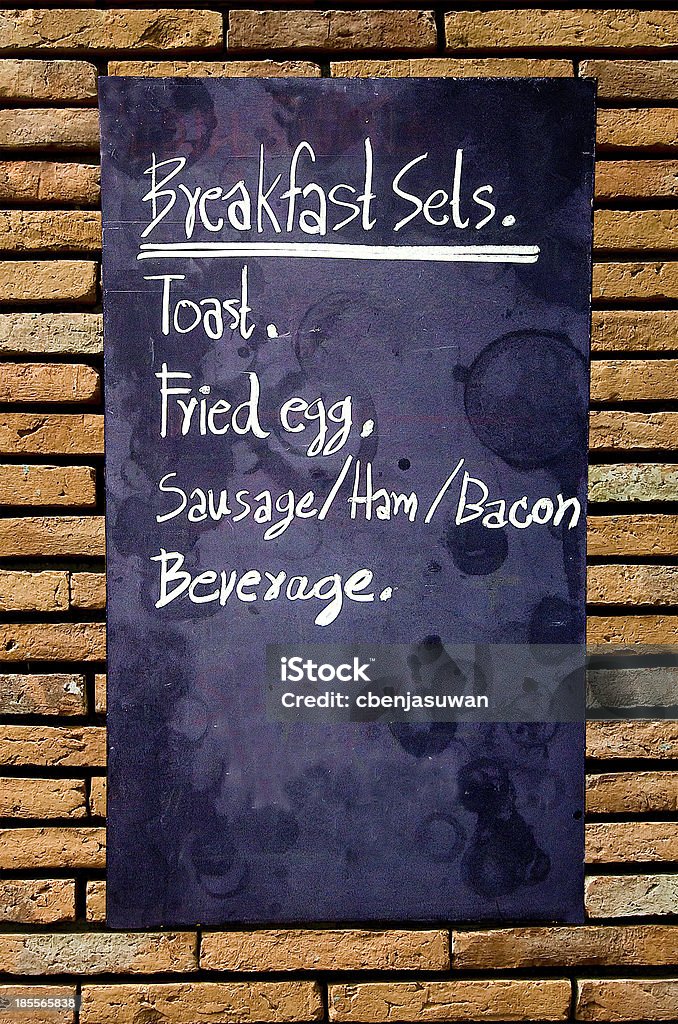 Breakfast Sets.
Toast.
Fried egg.
Sausage/Ham/Bacon
Beverage.
iStock™
Credit: cbenjasuwan
185565838